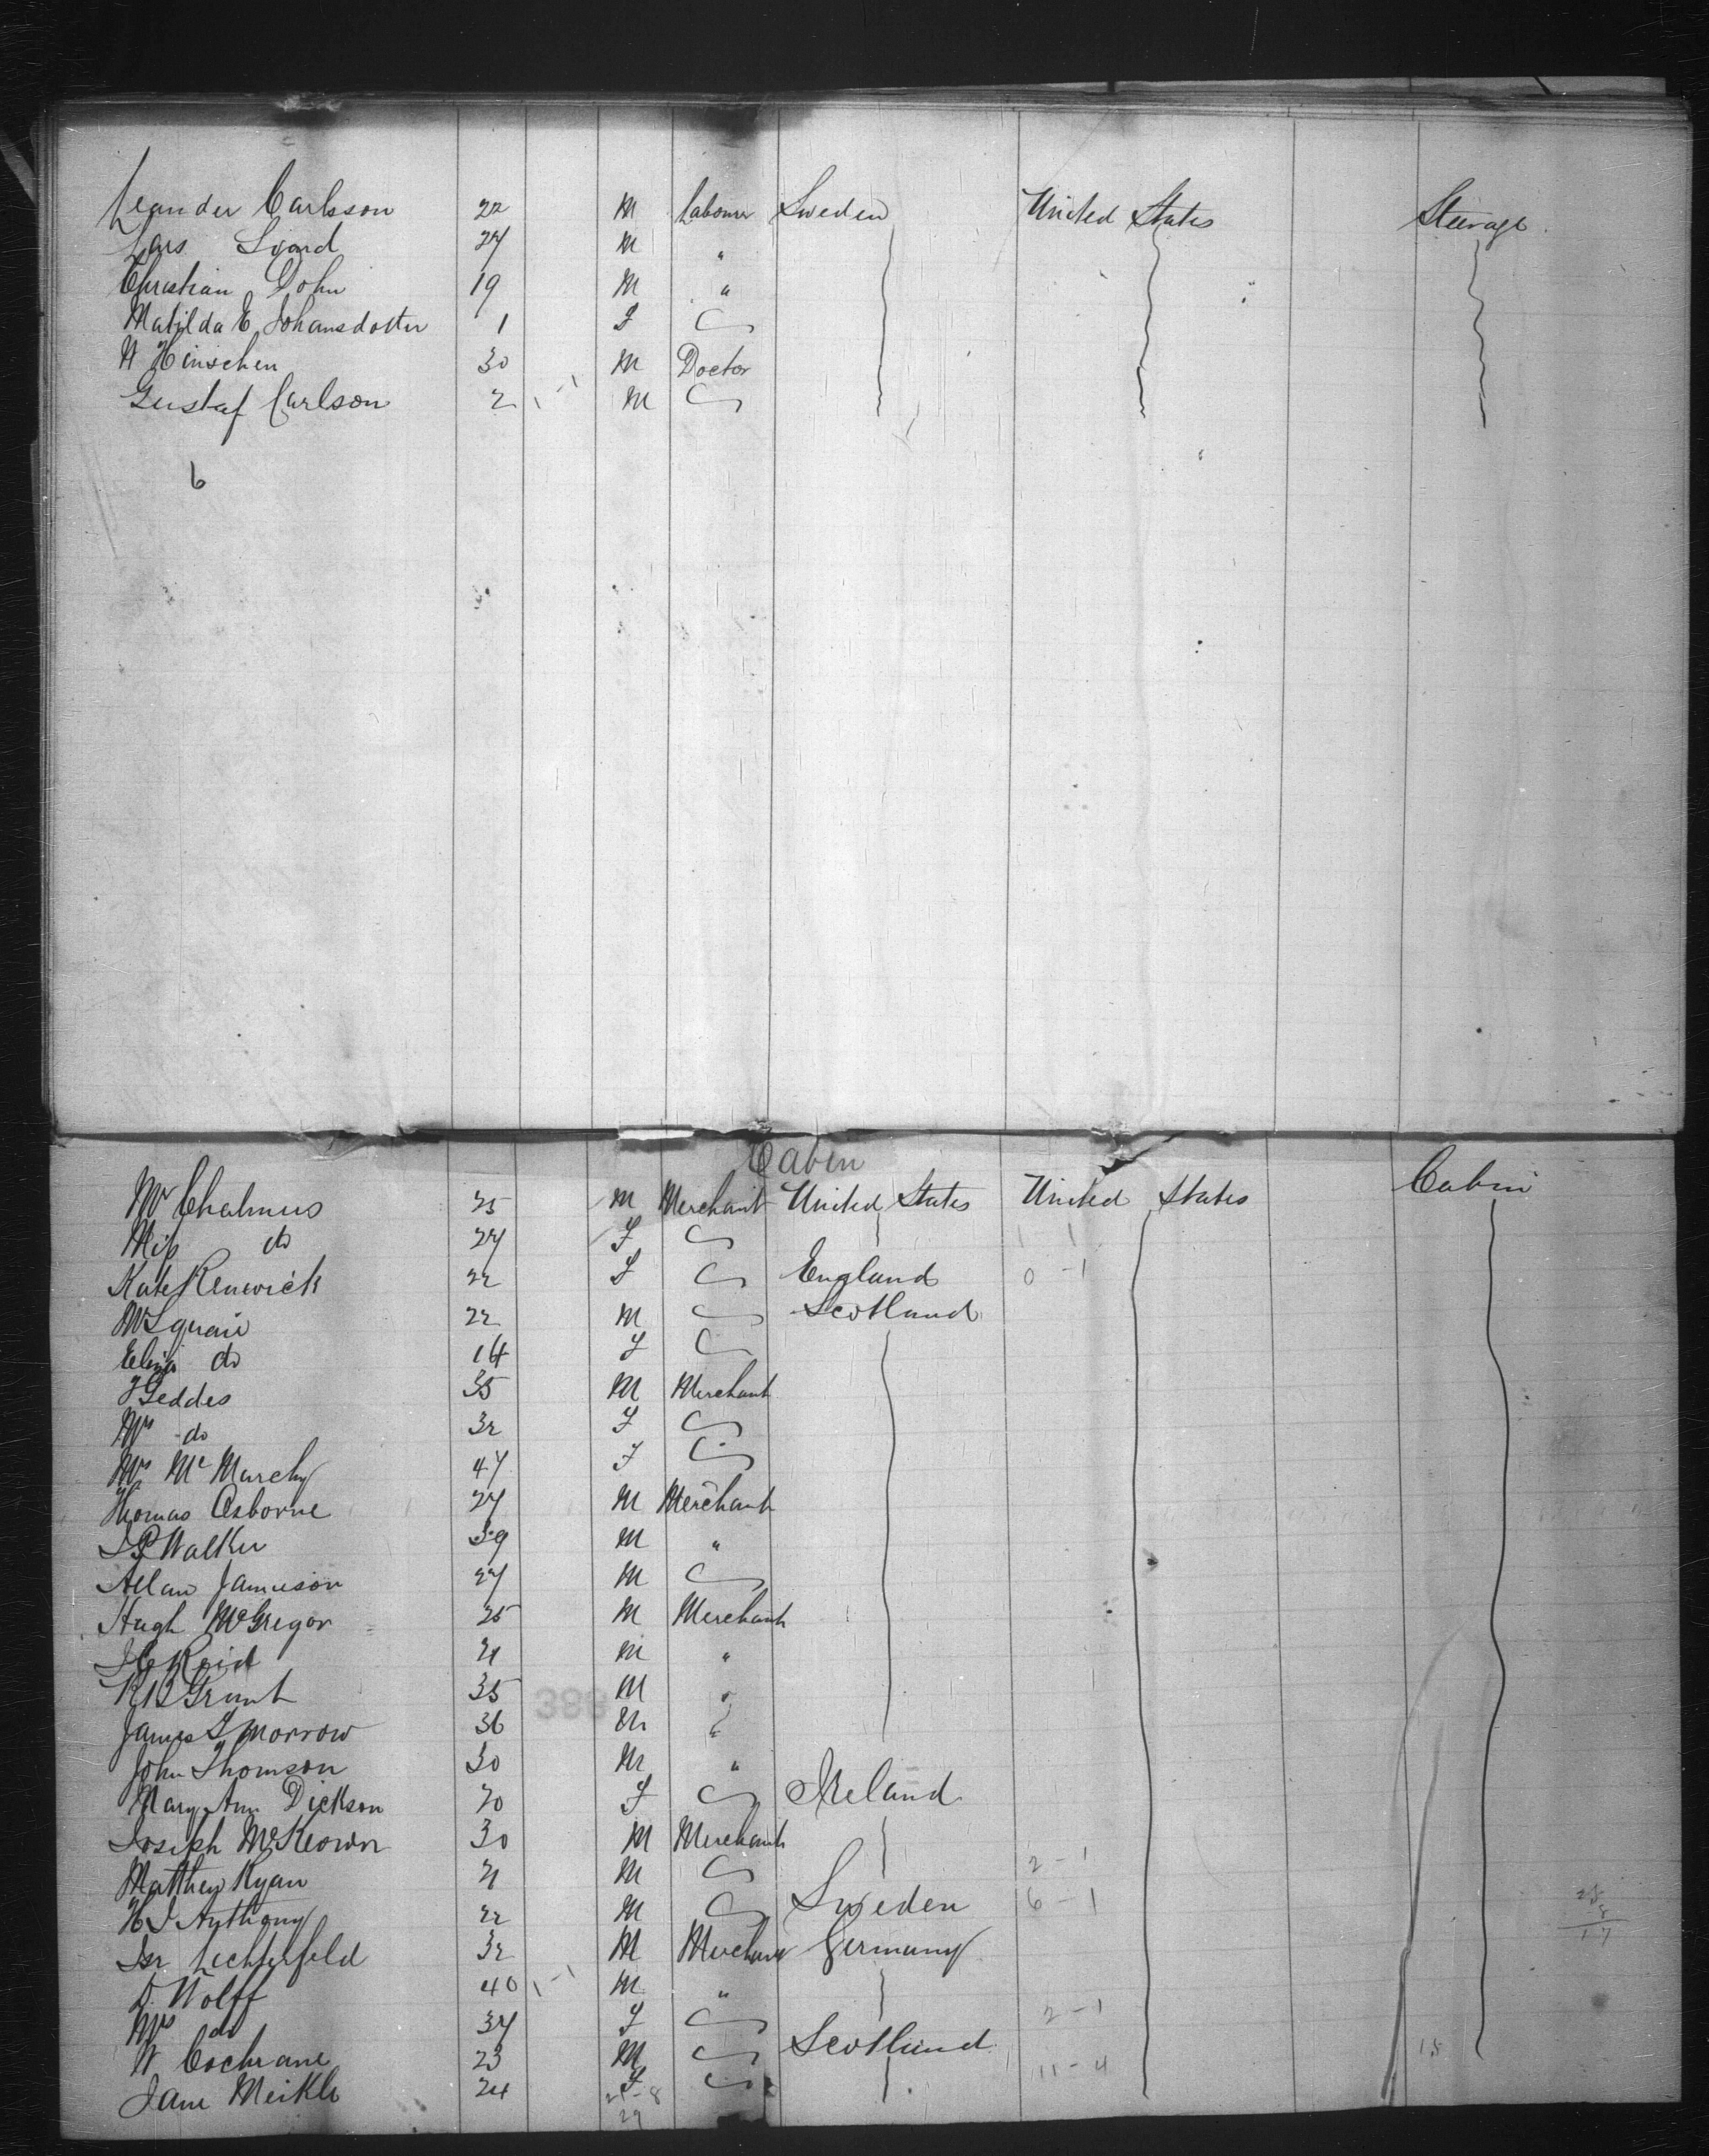 Leander Carlsson 22 M Labourer Sweden United States Steerage
Lars Svärd 27 M "
Christian Dohn 19 M "
Matilda E Johansdotter 1 F
W Hinschen 30 M Doctor
Gustaf Carlson 2 M
6
Cabin
Mr Chalmers 25 M Merchant United States United States Cabin
Miss do 27 F 1 1
Kate Renwick 22 F England 0 - 1
W Squair 22 M Scotland
Eliza do 14 F
J Geddes 35 M Merchant
Mrs do 32 F
Mrs McMurchy 47 F
Thomas Osborne 27 M Merchant
J P Walker 39 M "
Allan Jamieson 27 M
Hugh McGregor 25 M Merchant
J C Reid 21 M "
R B Grant 35 M "
James S Morrow 36 M "
John Thomson 30 M "
Mary Ann Dickson 20 F Ireland
Joseph McKeown 30 M Merchant
Matthew Ryan 21 M 2 - 1
H J Anthony 22 M Sweden 6 - 1
Isr Lechterfeld 32 M Merchant Germany
D. Wolff 40 1 - 1 M "
Mrs do 37 F 2 - 1
W Cochrane 23 M Scotland 11 - 4 18
Jane Meikle 24 F
21 - 8
29